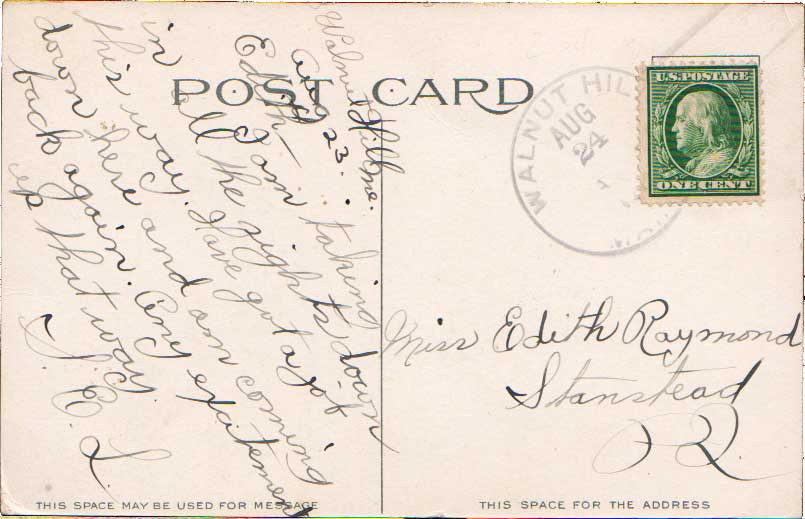 POST CARD
Walnut Hill Me.
Aug 23.
Edith—
I am taking
in all the sights down
this way. Have got a job
down here and am coming
back again. Any excitement
up that way.
S. E. L
WALNUT HILL
AUG
24
U.S. POSTAGE
ONE CENT
Miss Edith Raymond
Stanstead
P Q.
THIS SPACE MAY BE USED FOR MESSAGE
THIS SPACE FOR THE ADDRESS